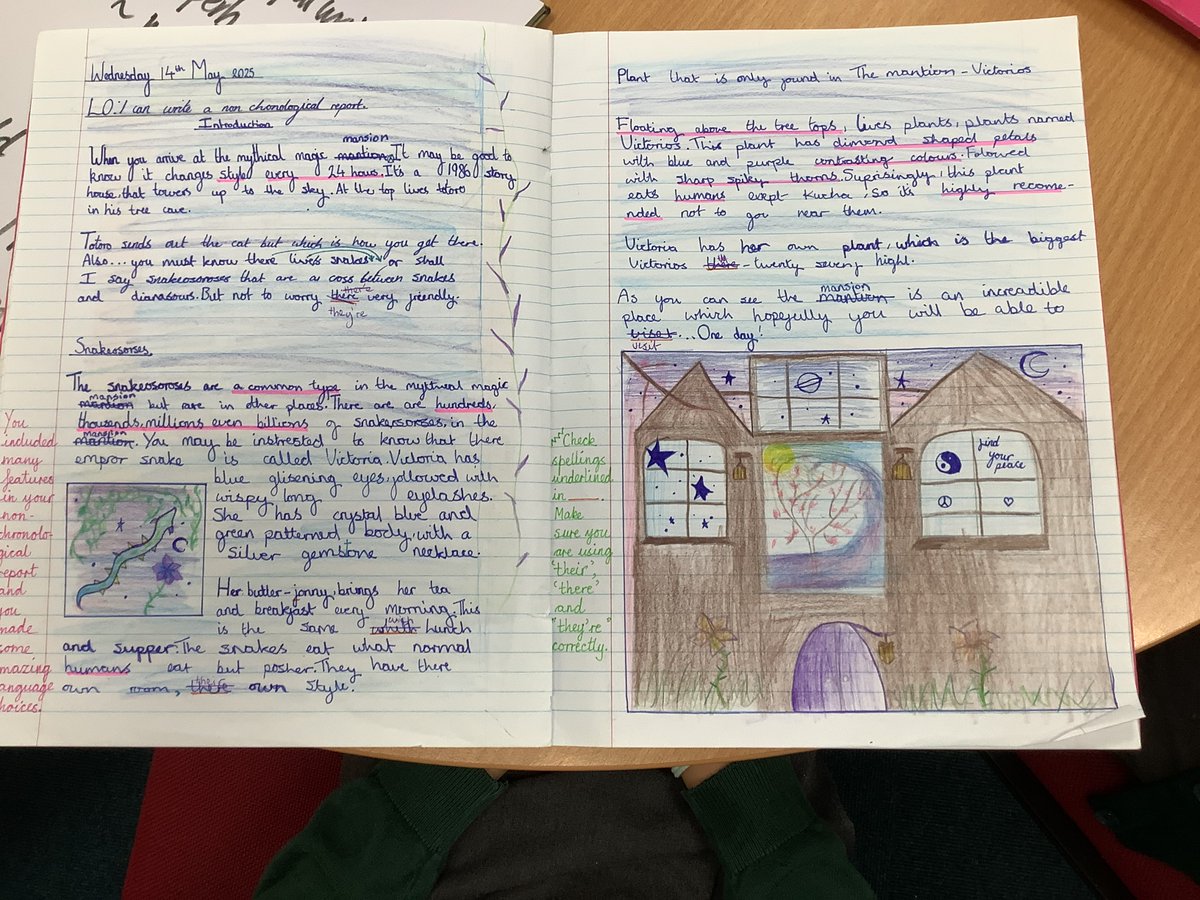 Wednesday 14th May 2025
LO: I can write a non chronological report.
Introduction
mansion
When you arrive at the mythical magic mantion, It may be good to
know it changes style every 24 hours. It's a 1986 story
house, that towers up to the sky. At the top lives totoro
in his tree cave.
Totoro sends out the cat but which is how you get there.
Also... you must know there lives snakes or shall
I say snakeosoroses that are a coss between snakes
and dianasours. But not to worry there very friendly.
they're
Snakeosorses.
The snakeosoroses are a common type in the mythical magic
mansion
mantion but are in other places. There are are hundreds,
thousands, millions even billions of snakersorses, in the
mansion
mantion. You may be instrested to know that there
empror snake is called Victoria. Victoria has
blue glisening eyes, followed with
wispy long eyelashes.
She has crystal blue and
green patterned body, with a
Silver gemstone necklace.
Her butler-jonny, brings her tea
and breakfast every morning. This
is the same with lunch
and supper. The snakes eat what normal
humans eat but posher. They have there
own room, there own style.
their
You
included
many
features
in your
non-
chronolo-
gical
report
and
you
made
some
amazing
language
choices.
Plant that is only found in The mantion - Victorios
Floating above the tree tops, lives plants, plants named
Victorios. This plant has dimond shaped petals
with blue and purple contrasting colours. Folowed
with sharp spiky thorns. Suprisingly, this plant
eats humans exept Kucha, So it's highly recome-
nded not to go near them.
Victoria has her own plant, which is the biggest
Victorios - twenty seven hight.
mansion
As you can see the mantion is an increadible
place which hopefully you will be able to
viset ... One day!
visit
Check
spellings
underlined
in
Make
sure you
are using
'their',
'there'
and
"they're"
correctly.
find
your
peace